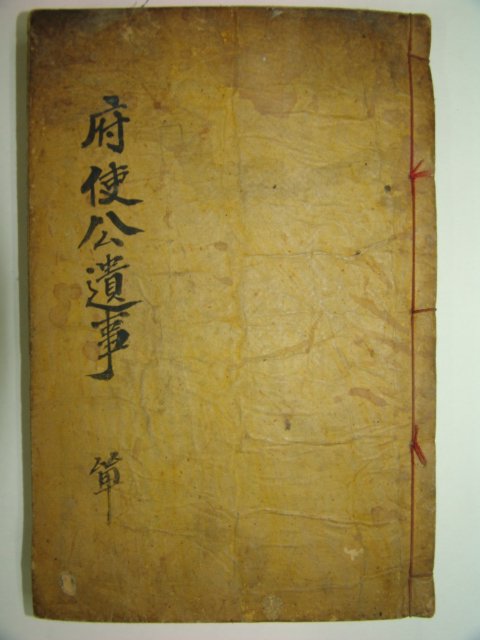 府使公遺事 單